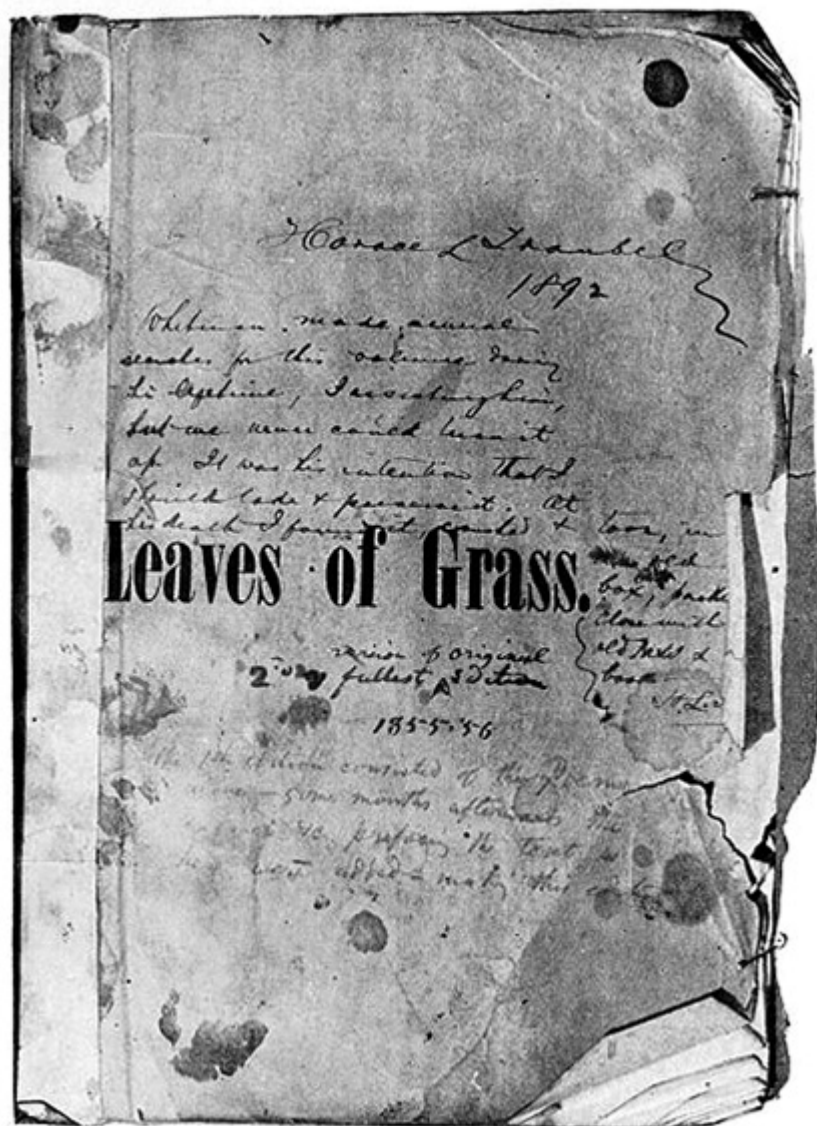 Horace L Traubel
1892
Whitman made several
searches for this volume during
his lifetime, I assisting him,
but we never could turn it
up. It was his intention that I
should take & preserve it. At
his death I found it, soiled & torn, in
an old
box, packed
close with
old MSS &
books
H.L.T.
Leaves of Grass.
version of original
2d or fullest Edition
1855-'56
The 1st edition consisted of the poems
alone — some months afterward the
prefacing the text
added making this